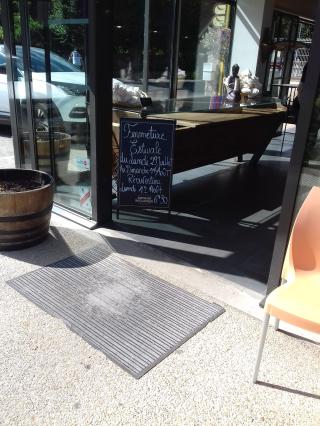 Fermeture
Estivale
du lundi 29 Juillet
au Dimanche 11 Août
Réouverture
Lundi 12 Août
6h30